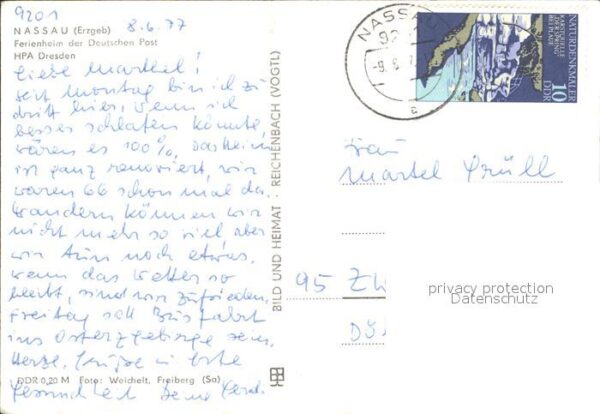 9201
8.6.77
NASSAU (Erzgeb)
Ferienheim der Deutschen Post
HPA Dresden
Liebe Martel!
seit Montag bin ich zu
dritt hier, wenn ich
besser schlafen könnte,
wären es 100%, das Heim
ist ganz renoviert, wir
waren 66 schon mal da.
Wandern können wir
nicht mehr so viel aber
wir tun noch etwas,
wenn das Wetter so
bleibt, sind wir zufrieden,
Freitag soll Busfahrt
ins Osterzgebirge sein.
Herzl. Grüße in
Gesundheit Deine
DDR 0,20 M Foto: Weichelt, Freiberg (Sa)
BILD UND HEIMAT · REICHENBACH (VOGTL)
NASSAU
92
-9.6.7
a
NATURDENKMÄLER
KARSTQUELLE
"DER SPRING"
BEI PLAUE
10
DDR
Frau
Martel Prüll
95 Zw
privacy protection
Datenschutz